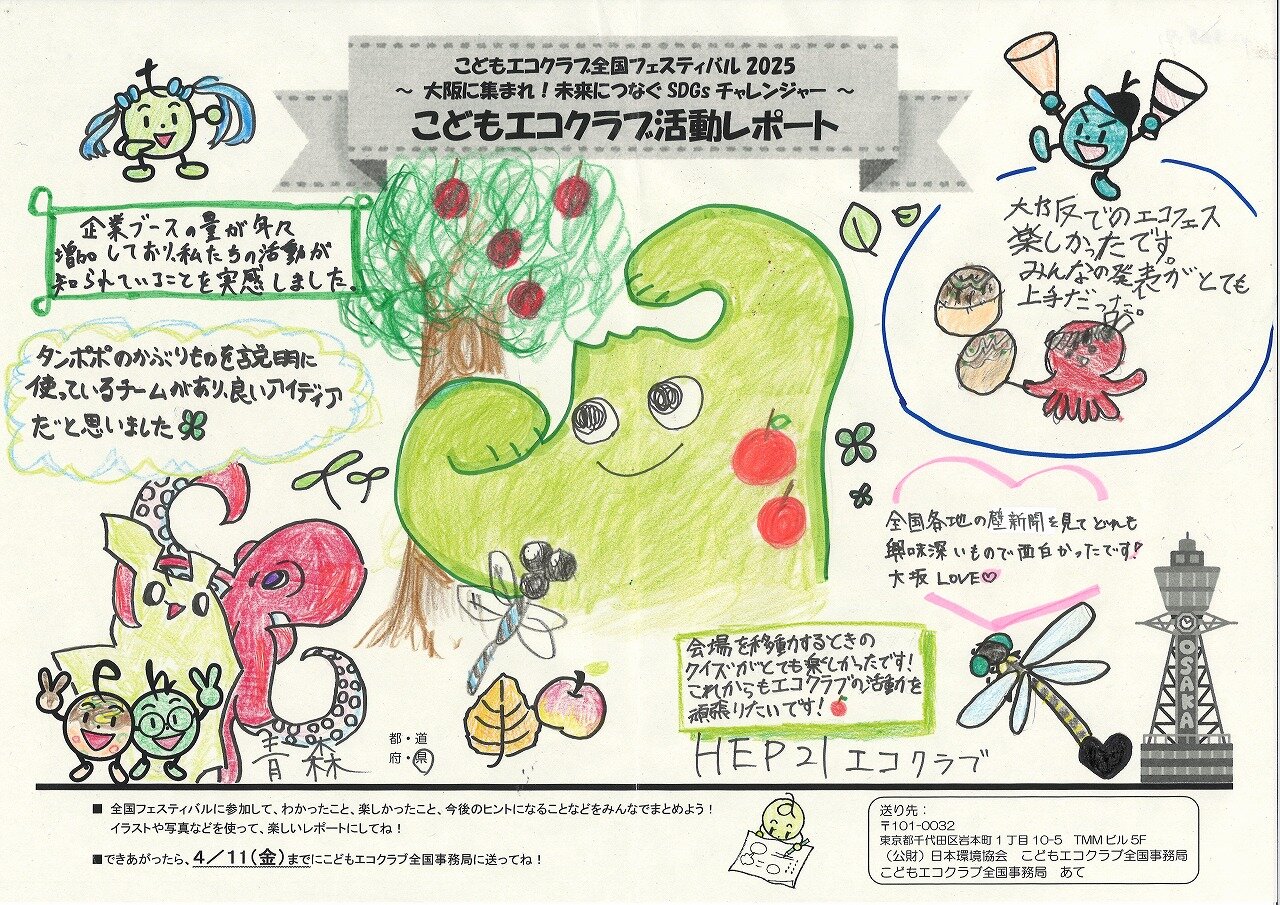 こどもエコクラブ全国フェスティバル 2025
～ 大阪に集まれ！未来につなぐ SDGs チャレンジャー ～
こどもエコクラブ活動レポート
企業ブースの量が年々
増加しており、私たちの活動が
知られていることを実感しました。
タンポポのかぶりものを説明に
使っているチームがあり、良いアイディア
だと思いました
大阪でのエコフェス
楽しかったです。
みんなの発表がとても
上手だった。
全国各地の壁新聞を見てどれも
興味深いもので面白かったです！
大坂 LOVE♡
OSAKA
会場を移動するときの
クイズがとても楽しかったです！
これからもエコクラブの活動を
頑張りたいです！
青森
都・道
府・県
HEP21エコクラブ
■ 全国フェスティバルに参加して、わかったこと、楽しかったこと、今後のヒントになることなどをみんなでまとめよう！
イラストや写真などを使って、楽しいレポートにしてね！
■できあがったら、4／11(金)までにこどもエコクラブ全国事務局に送ってね！
送り先：
〒101-0032
東京都千代田区岩本町 1 丁目 10-5 TMM ビル 5F
（公財）日本環境協会 こどもエコクラブ全国事務局
こどもエコクラブ全国事務局 あて